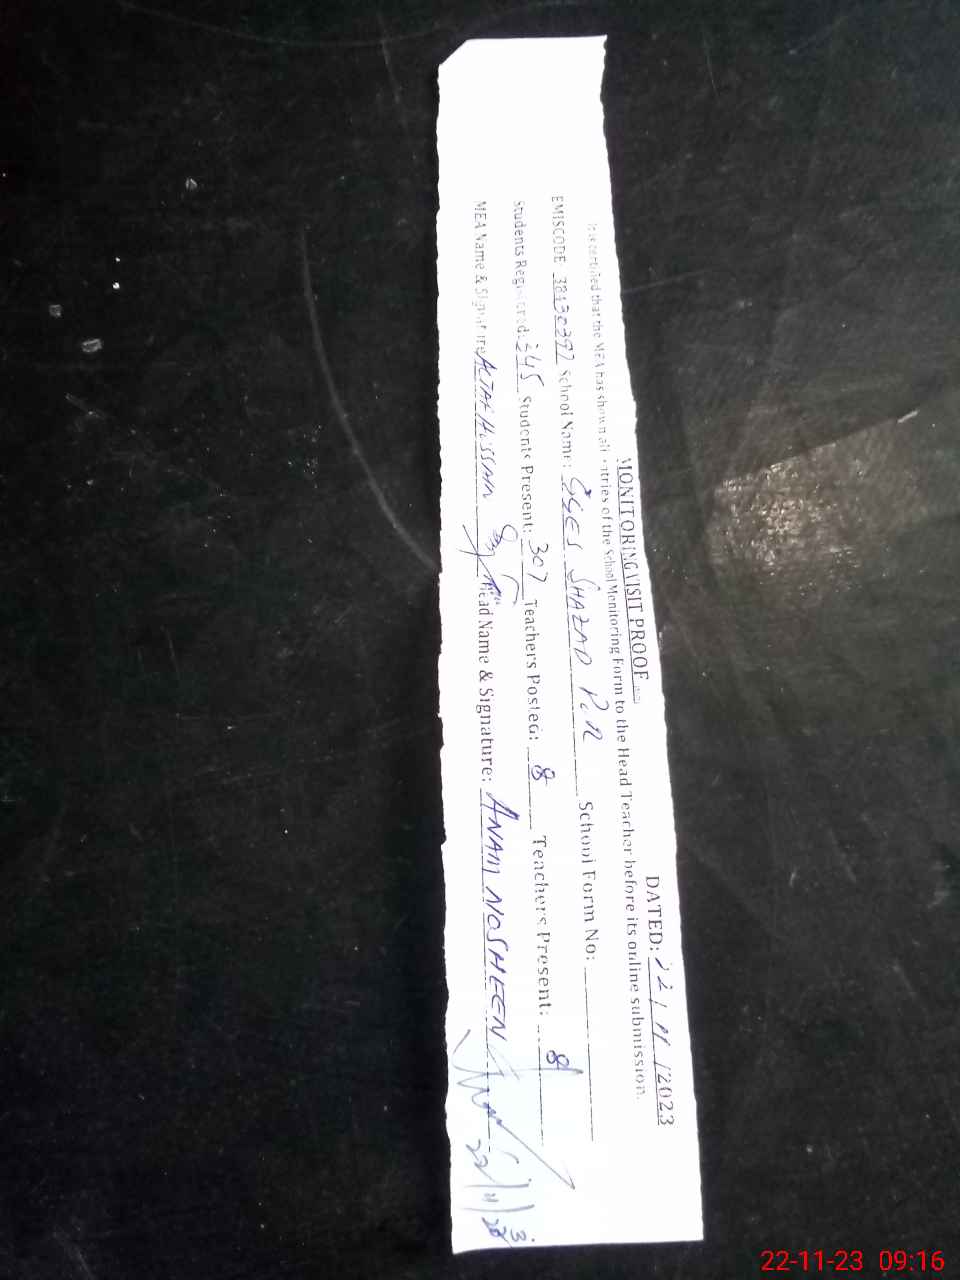 MONITORING VISIT PROOF
DATED: 22/11/2023
It is certified that the MEA has shown all entries of the School Monitoring Form to the Head Teacher before its online submission.
EMISCODE 38430392 School Name: GGES SHAZAD PUR School Form No:
Students Registered: 345 Students Present: 307 Teachers Posted: 8 Teachers Present: 8
MEA Name & Signature ALTAF HUSSAIN Head Name & Signature: ANAM NOSHEEN
22/11/23
22-11-23 09:16